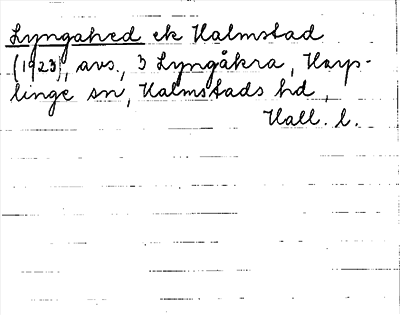 Lyngahed ek Halmstad
(1923), avs., 3 Lyngåkra, Harp-
linge sn, Halmstads hd,
Hall. l.